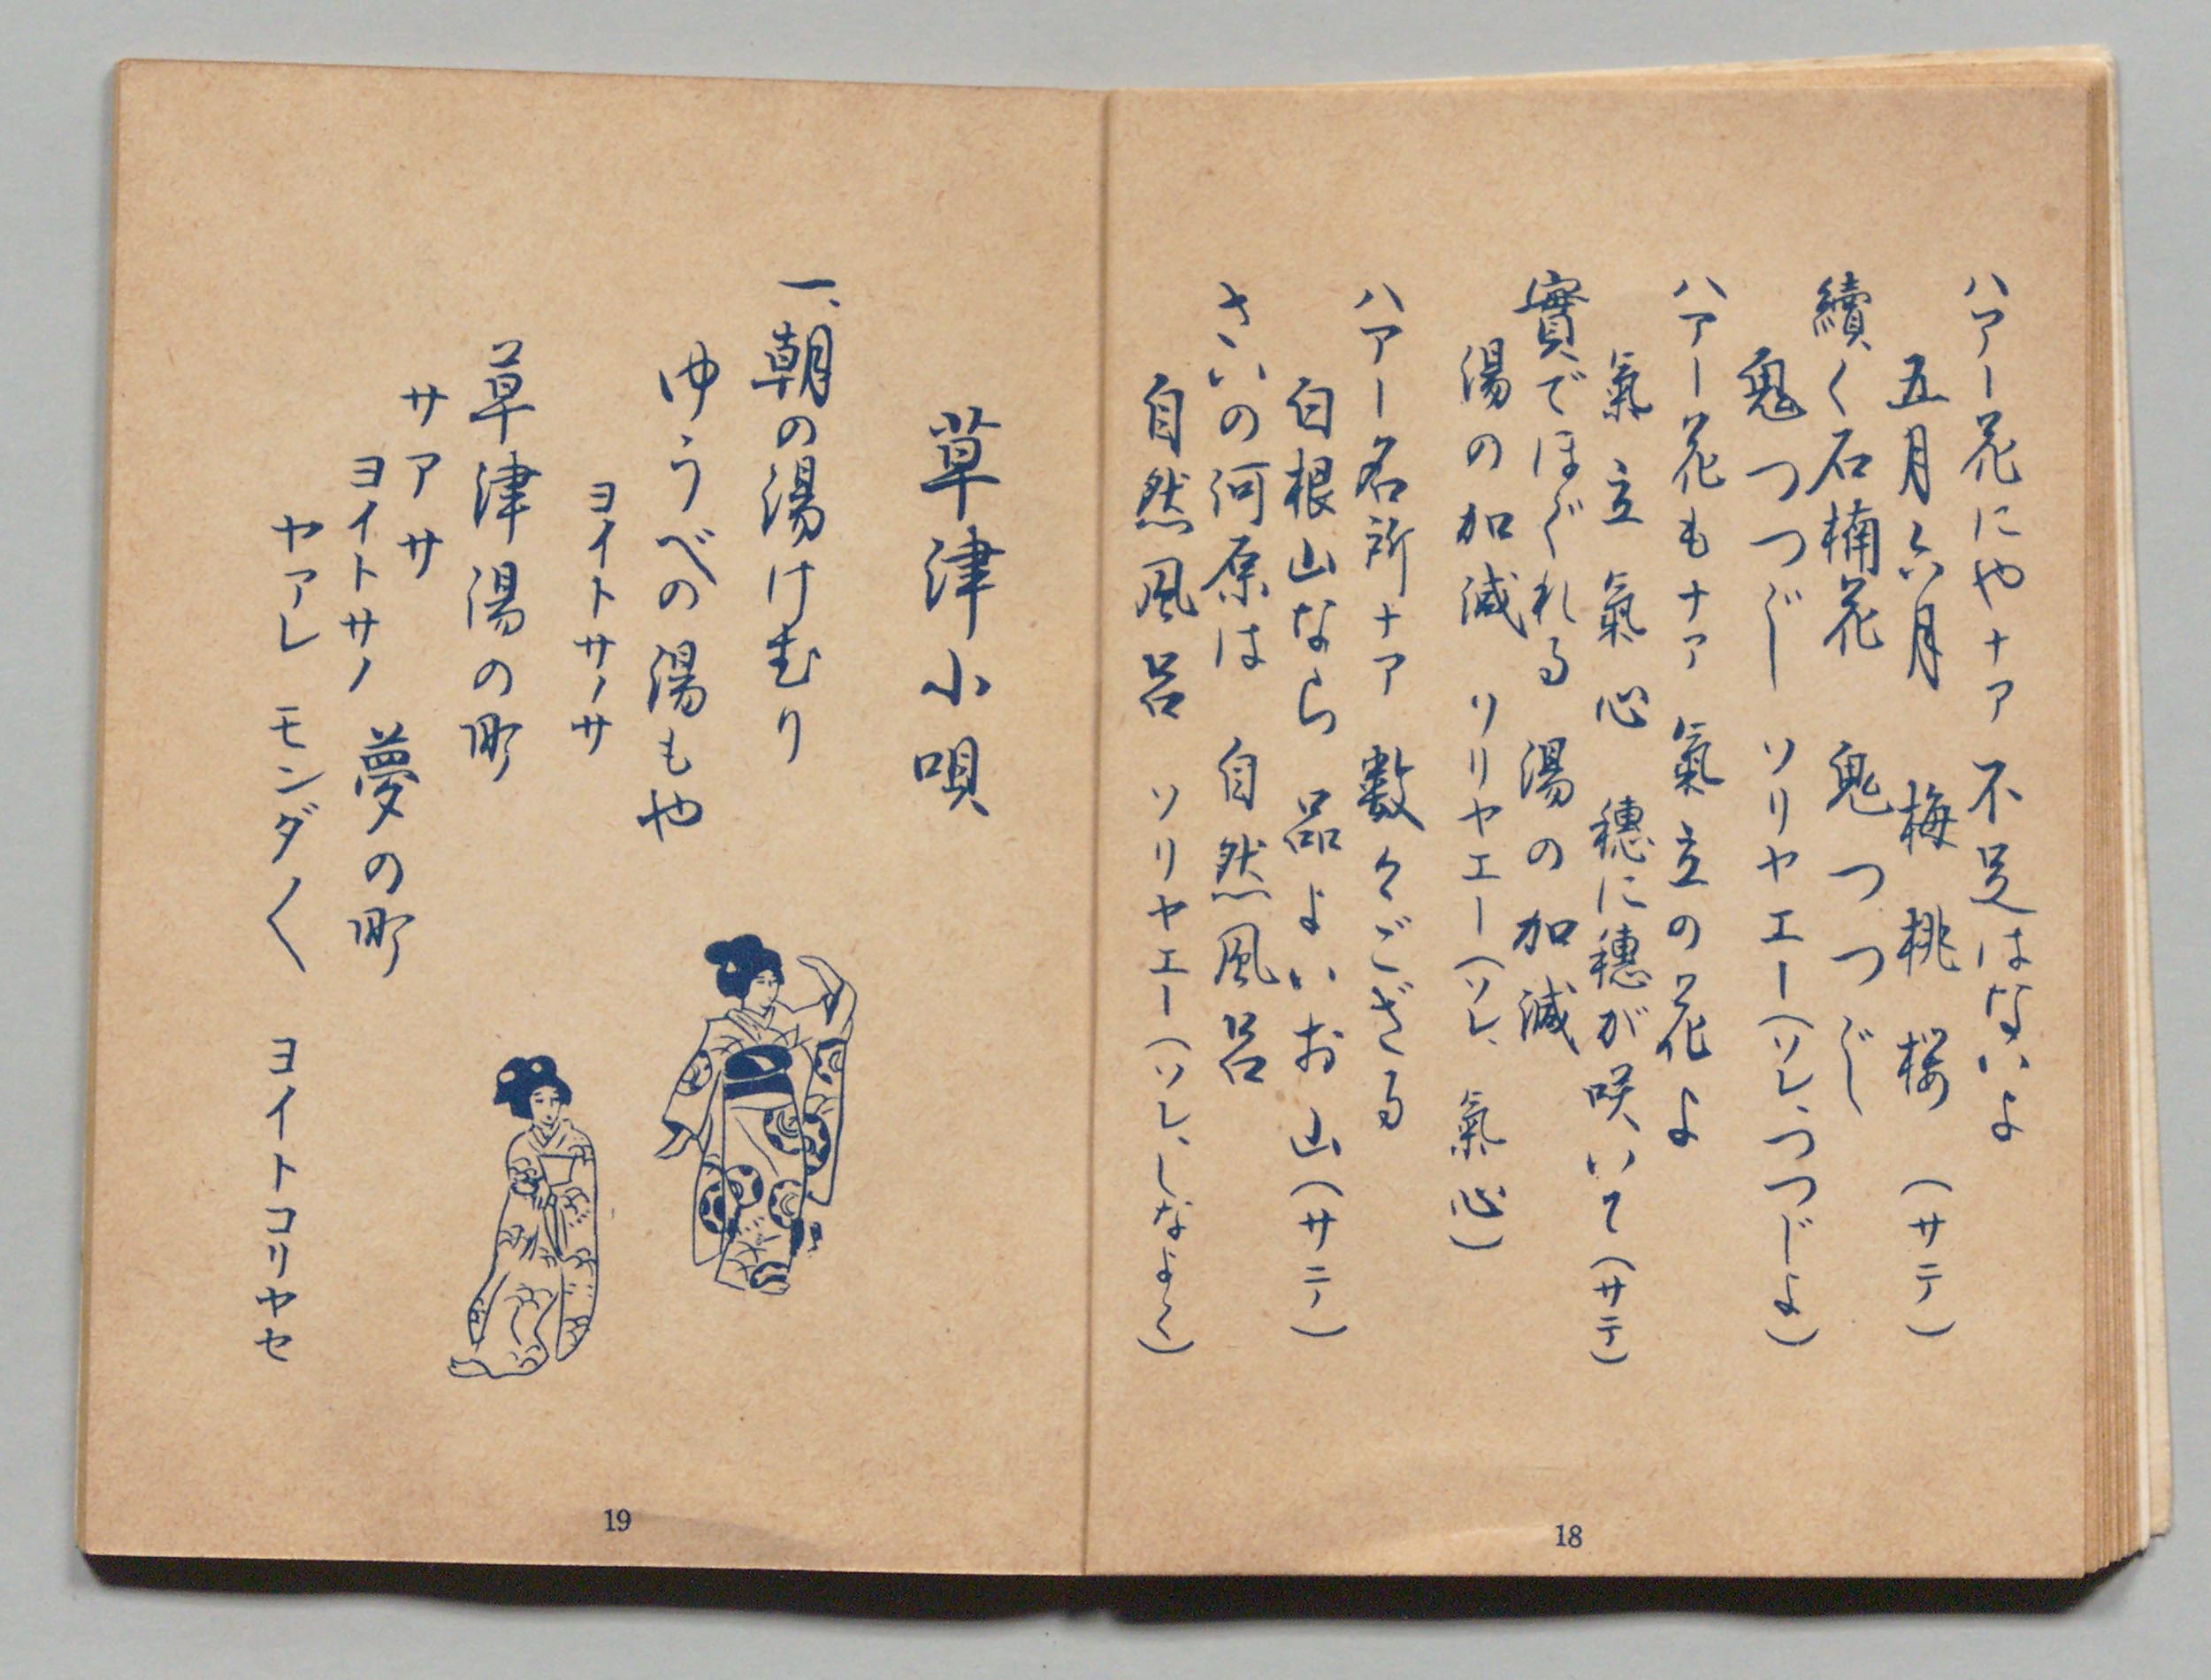 ハアー花にやナア 不足はないよ
五月六月 梅 桃 桜 (サテ)
續く石楠花 鬼つつじ
鬼つつじ ソリヤエー(ソレ、つつじよ)
ハアー花もナア 氣立の花よ
氣立氣心 穗に穗が咲いて(サテ)
實でほぐれる 湯の加減
湯の加減 ソリヤエー(ソレ、氣心)
ハアー名所ナア 数々ござる
白根山なら 品よいお山(サテ)
さいの河原は 自然風呂
自然風呂 ソリヤエー(ソレ、しなよく)
18
草津小唄
一、朝の湯けむり
ゆうべの湯もや
ヨイトサノサ
草津湯の町
サアサ
ヨイトサノ 夢の町
ヤアレ モンダ〱 ヨイトコリヤセ
19